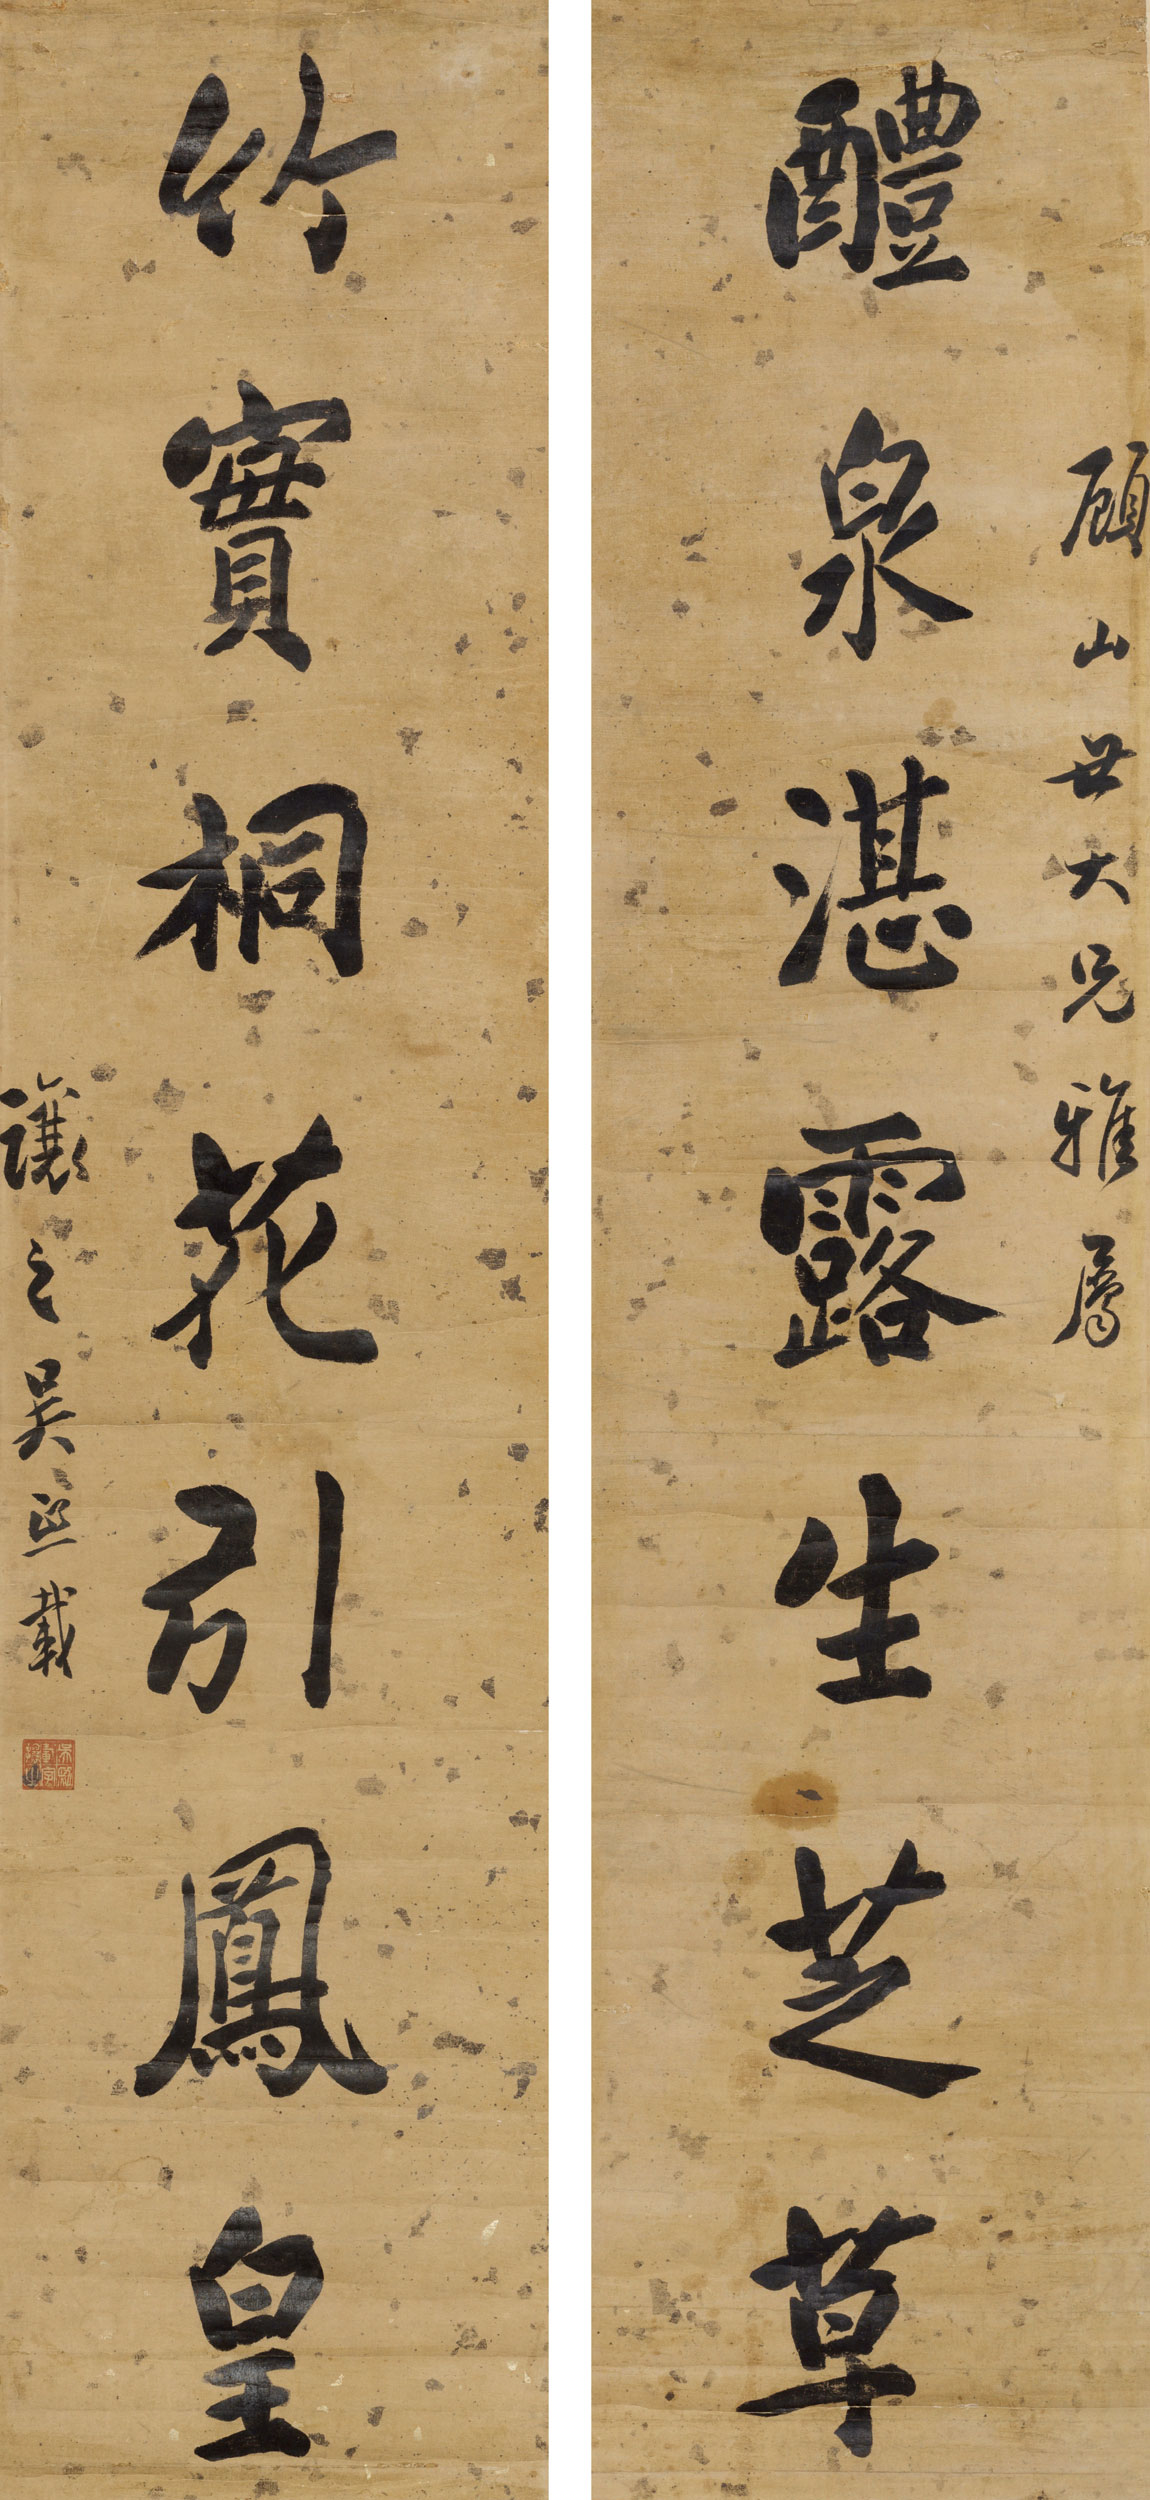 顧山世大兄雅屬
醴泉湛露生芝草
竹實桐花引鳳皇
讓之吳熙載